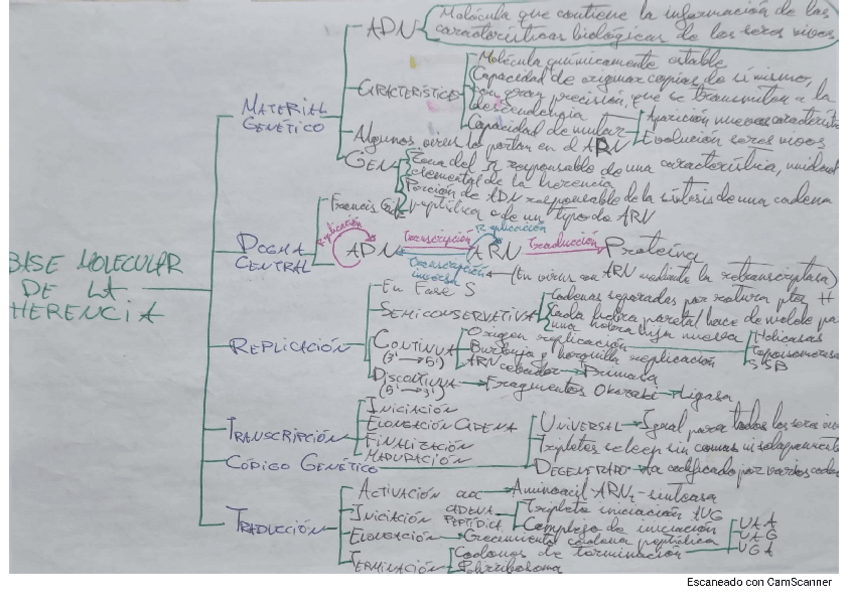 ADN
Molécula que contiene la información de las
características biológicas de los seres vivos
MATERIAL
GENÉTICO
CARACTERÍSTICAS
Molécula químicamente estable
Capacidad de originar copias de sí mismo,
con gran precisión, que se transmiten a la
descendencia
Capacidad de mutar
Aparición nuevas
Evolución seres vivos
Algunos virus lo portan en el ARN
GEN
Zona del responsable de una característica, unidad
elemental de la herencia
Porción de ADN responsable de la síntesis de una cadena
peptídica o de un tipo de ARN
BASE MOLECULAR
DE LA
HERENCIA
DOGMA
CENTRAL
Francis
Replicación
ADN
Transcripción
Transcripción
inversa
Replicación
ARN
Traducción
Proteína
(En virus con ARN mediante la retranscriptasa)
REPLICACIÓN
En Fase S
SEMICONSERVATIVA
Cadenas separadas por rotura ptes H
Cada hebra parental hace de molde
una hebra hija nueva
CONTINUA
(3'→5')
Origen replicación
Burbuja y horquilla replicación
Helicasas
SSB
ARN cebador → Primasa
DISCONTINUA
Fragmentos Okazaki → Ligasa
TRANSCRIPCIÓN
INICIACIÓN
ELONGACIÓN CADENA
FINALIZACIÓN
MADURACIÓN
CÓDIGO GENÉTICO
UNIVERSAL → Igual para todos los seres
Tripletes se leen sin comas ni
DEGENERADO → codificado por varios
TRADUCCIÓN
ACTIVACIÓN aa → Aminoacil-ARNt-sintetasa
INICIACIÓN CADENA
PEPTÍDICA
Triplete iniciación AUG
Complejo de iniciación
ELONGACIÓN → Crecimiento cadena peptídica
TERMINACIÓN
Codones de terminación
UAA
UAG
UGA
Polirribosoma
Escaneado con CamScanner